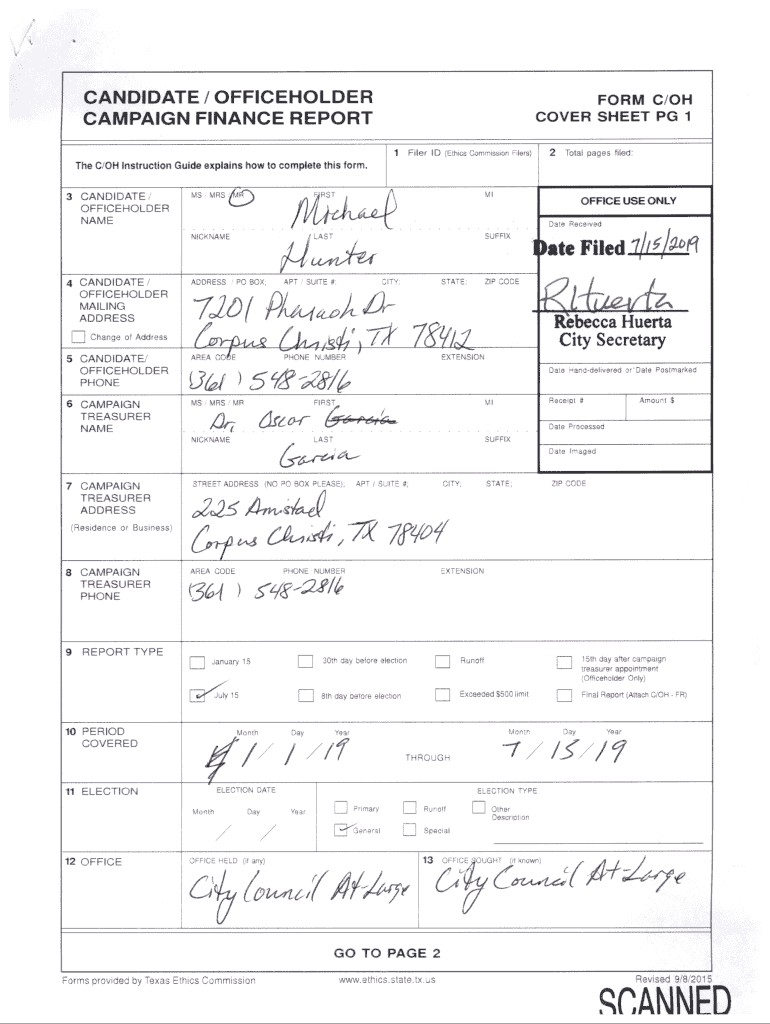 CANDIDATE / OFFICEHOLDER
CAMPAIGN FINANCE REPORT
FORM C/OH
COVER SHEET PG 1
The C/OH Instruction Guide explains how to complete this form.
1 Filer ID (Ethics Commission Filers)
2 Total pages filed:
3 CANDIDATE / OFFICEHOLDER NAME
MS / MRS / MR FIRST MI
Michael
NICKNAME LAST SUFFIX
Hunter
OFFICE USE ONLY
Date Received
Date Filed 7/15/2019
RHuerta
Rebecca Huerta
City Secretary
Date Hand-delivered or Date Postmarked
Receipt # Amount $
Date Processed
Date Imaged
4 CANDIDATE / OFFICEHOLDER MAILING ADDRESS
Change of Address
ADDRESS / PO BOX; APT / SUITE #; CITY; STATE; ZIP CODE
7201 Pharaoh Dr
Corpus Christi, TX 78412
5 CANDIDATE/ OFFICEHOLDER PHONE
AREA CODE PHONE NUMBER EXTENSION
(361) 548-2816
6 CAMPAIGN TREASURER NAME
MS / MRS / MR FIRST MI
Dr. Oscar Garcia
NICKNAME LAST SUFFIX
Garcia
7 CAMPAIGN TREASURER ADDRESS
(Residence or Business)
STREET ADDRESS (NO PO BOX PLEASE); APT / SUITE #; CITY; STATE; ZIP CODE
225 Amistad
Corpus Christi, TX 78404
8 CAMPAIGN TREASURER PHONE
AREA CODE PHONE NUMBER EXTENSION
(361) 548-2816
9 REPORT TYPE
January 15 30th day before election Runoff 15th day after campaign treasurer appointment (Officeholder Only)
July 15 8th day before election Exceeded $500 limit Final Report (Attach C/OH - FR)
10 PERIOD COVERED
Month Day Year
1 / 1 / 19
THROUGH
Month Day Year
7 / 15 / 19
11 ELECTION
ELECTION DATE
Month Day Year
/ /
ELECTION TYPE
Primary Runoff Other Description
General Special
12 OFFICE
OFFICE HELD (if any)
City Council At-Large
13 OFFICE SOUGHT (if known)
City Council At-Large
GO TO PAGE 2
Forms provided by Texas Ethics Commission www.ethics.state.tx.us Revised 9/8/2015
SCANNED